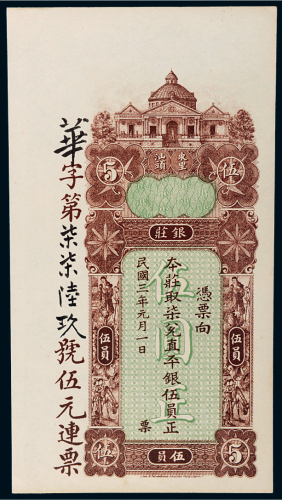 廣東
汕頭
5
伍
銀莊
憑票向
本莊取柒兌直平銀伍員正
民國三年元月一日
票
伍員
伍員
伍圓正
華字第柒柒陸玖號伍元連票
伍
伍員
5